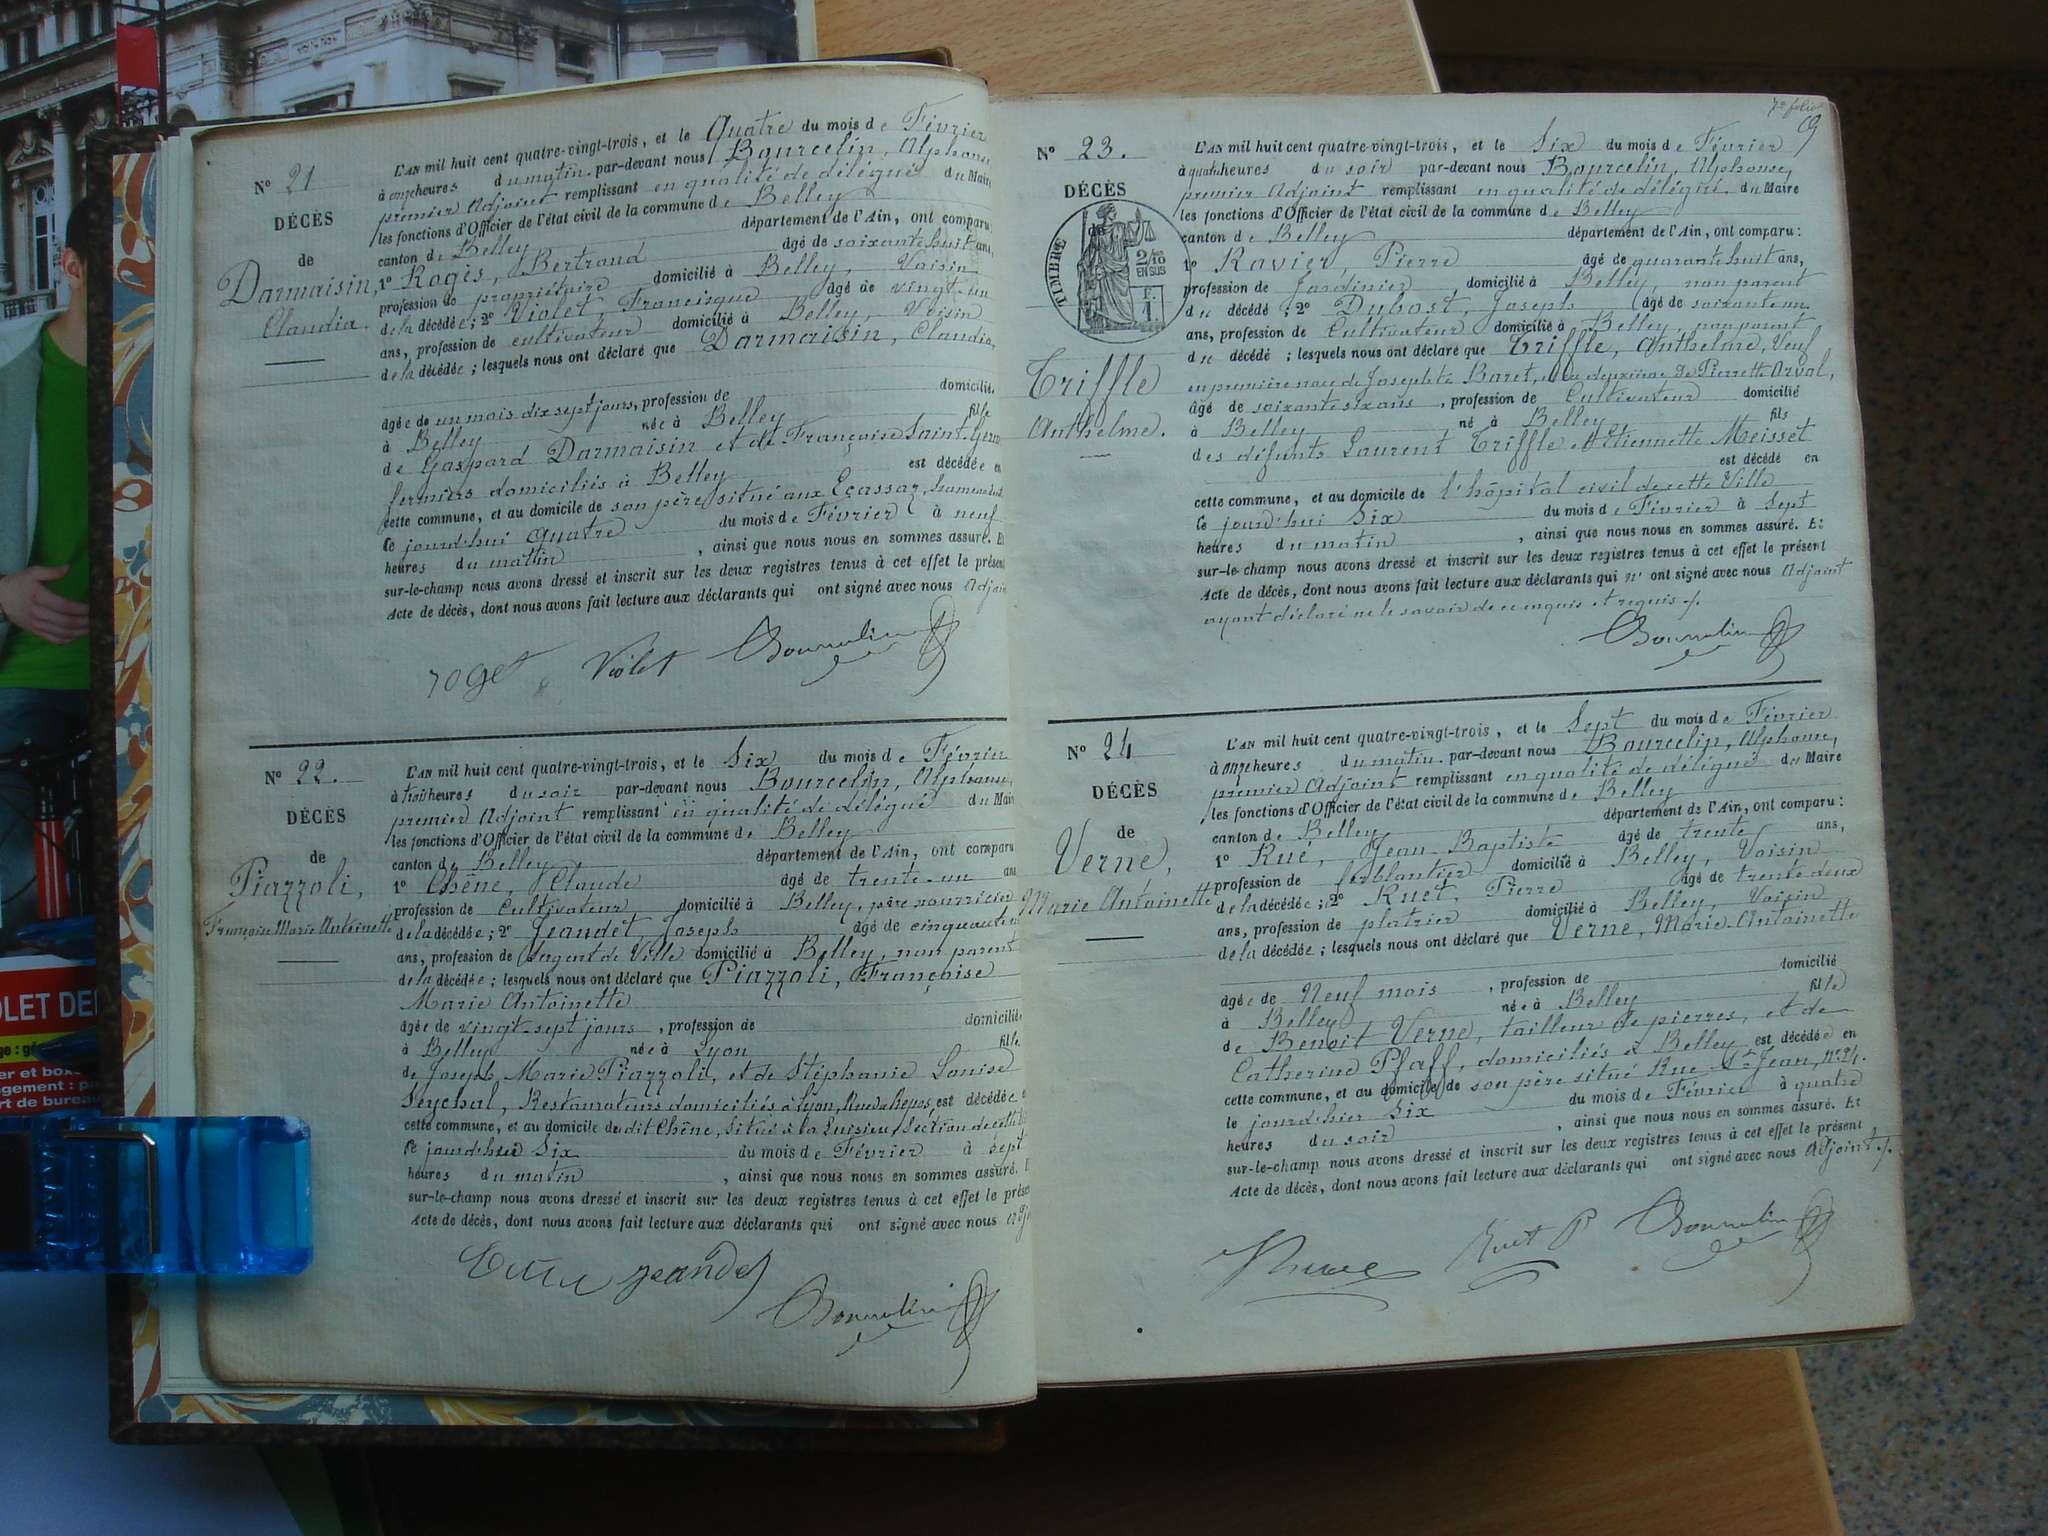 N° 21
DÉCÈS
de
Darmaisin,
Claudia.
L'AN mil huit cent quatre-vingt-trois, et le Quatre du mois de Février
à onze heures du matin par-devant nous Bourcelin, Alphonse
premier Adjoint remplissant en qualité de délégué du Maire
les fonctions d'Officier de l'état civil de la commune de Belley
canton de Belley département de l'Ain, ont comparu
1° Rogès, Bertrand âgé de soixante huit ans,
profession de propriétaire domicilié à Belley, Voisin
de la décédée; 2° Violet, Francisque âgé de vingt-un
ans, profession de cultivateur domicilié à Belley, Voisin
de la décédée; lesquels nous ont déclaré que Darmaisin, Claudia,
âgée de un mois dix sept jours, profession de domicilié
à Belley née à Belley fille
de Gaspard Darmaisin et de Françoise Saint-
fermiers domiciliés à Belley est décédée en
cette commune, et au domicile de son père, situé aux Eçassaz, hameau
ce jourd'hui quatre du mois de Février à neuf
heures du matin , ainsi que nous nous en sommes assuré. Et
sur-le-champ nous avons dressé et inscrit sur les deux registres tenus à cet effet le présent
Acte de décès, dont nous avons fait lecture aux déclarants qui ont signé avec nous Adjoin
roget Violet Bourcelin
N° 22.
DÉCÈS
de
Piazzoli,
Françoise Marie Antoinette
L'AN mil huit cent quatre-vingt-trois, et le Six du mois de Février
à trois heures du soir par-devant nous Bourcelin, Alphonse,
premier Adjoint remplissant en qualité de délégué du Mair
les fonctions d'Officier de l'état civil de la commune de Belley
canton de Belley département de l'Ain, ont comparu
1° Chêne, Claude âgé de trente-un ans
profession de Cultivateur domicilié à Belley, père nourricier
de la décédée; 2° Jeandet, Joseph âgé de cinquante
ans, profession de Sergent de Ville domicilié à Belley, non parent
de la décédée; lesquels nous ont déclaré que Piazzoli, Françoise
Marie Antoinette
âgée de vingt-sept jours, profession de domicilié
à Belley née à Lyon fille
de Joseph Marie Piazzoli, et de Stéphanie Louise
Seychal, Restaurateurs domiciliés à Lyon, Rue du Repos, est décédée
cette commune, et au domicile dudit Chêne, situé à la Luisieu, Section de cette
Ce jourd'hui Six du mois de Février à sept
heures du matin , ainsi que nous nous en sommes assuré.
sur-le-champ nous avons dressé et inscrit sur les deux registres tenus à cet effet le prése
Acte de décès, dont nous avons fait lecture aux déclarants qui ont signé avec nous
jeandet
Bourcelin
7e folio
N° 23.
DÉCÈS
TIMBRE
2/10
EN SUS
F.
1.
Triffle
Anthelme.
L'AN mil huit cent quatre-vingt-trois, et le Six du mois de Février
à quatre heures du soir par-devant nous Bourcelin, Alphonse,
premier Adjoint remplissant en qualité de délégué du Maire
les fonctions d'Officier de l'état civil de la commune de Belley
canton de Belley département de l'Ain, ont comparu:
1° Ravier, Pierre âgé de quarante huit ans,
profession de Jardinier domicilié à Belley, non parent
du décédé; 2° Dubost, Joseph âgé de soixante un
ans, profession de Cultivateur domicilié à Belley, non parent
du décédé; lesquels nous ont déclaré que Triffle, Anthelme, Veuf
en première noce de Josephte Baret, et en deuxième de Pierrette Orval,
âgé de soixante six ans, profession de Cultivateur domicilié
à Belley né à Belley fils
des défunts Laurent Triffle et Etiennette Meisset
est décédé en
cette commune, et au domicile de l'hôpital civil de cette Ville
Ce jourd'hui Six du mois de Février à Sept
heures du matin , ainsi que nous nous en sommes assuré. Et
sur-le-champ nous avons dressé et inscrit sur les deux registres tenus à cet effet le présent
Acte de décès, dont nous avons fait lecture aux déclarants qui n'ont signé avec nous Adjoint
ayant déclaré ne le savoir de ce enquis et requis ./.
Bourcelin
N° 24
DÉCÈS
de
Verne,
Marie Antoinette
L'AN mil huit cent quatre-vingt-trois, et le Sept du mois de Février
à onze heures du matin par-devant nous Bourcelin, Alphonse,
premier Adjoint remplissant en qualité de délégué du Maire
les fonctions d'Officier de l'état civil de la commune de Belley
canton de Belley département de l'Ain, ont comparu:
1° Rué, Jean Baptiste âgé de trente ans,
profession de ferblantier domicilié à Belley, Voisin
de la décédée; 2° Ruet, Pierre âgé de trente deux
ans, profession de platrier domicilié à Belley, Voisin
de la décédée; lesquels nous ont déclaré que Verne, Marie-Antoinette
âgée de Neuf mois, profession de domicilié
à Belley née à Belley fille
de Benoit Verne, tailleur de pierres, et de
Catherine Pfaff, domiciliés à Belley est décédée en
cette commune, et au domicile de son père situé Rue St Jean, N° 24.
le jourd'hier Six du mois de Février à quatre
heures du soir , ainsi que nous nous en sommes assuré. Et
sur-le-champ nous avons dressé et inscrit sur les deux registres tenus à cet effet le présent
Acte de décès, dont nous avons fait lecture aux déclarants qui ont signé avec nous Adjoint ./.
Ruet P Bourcelin
OLET DE